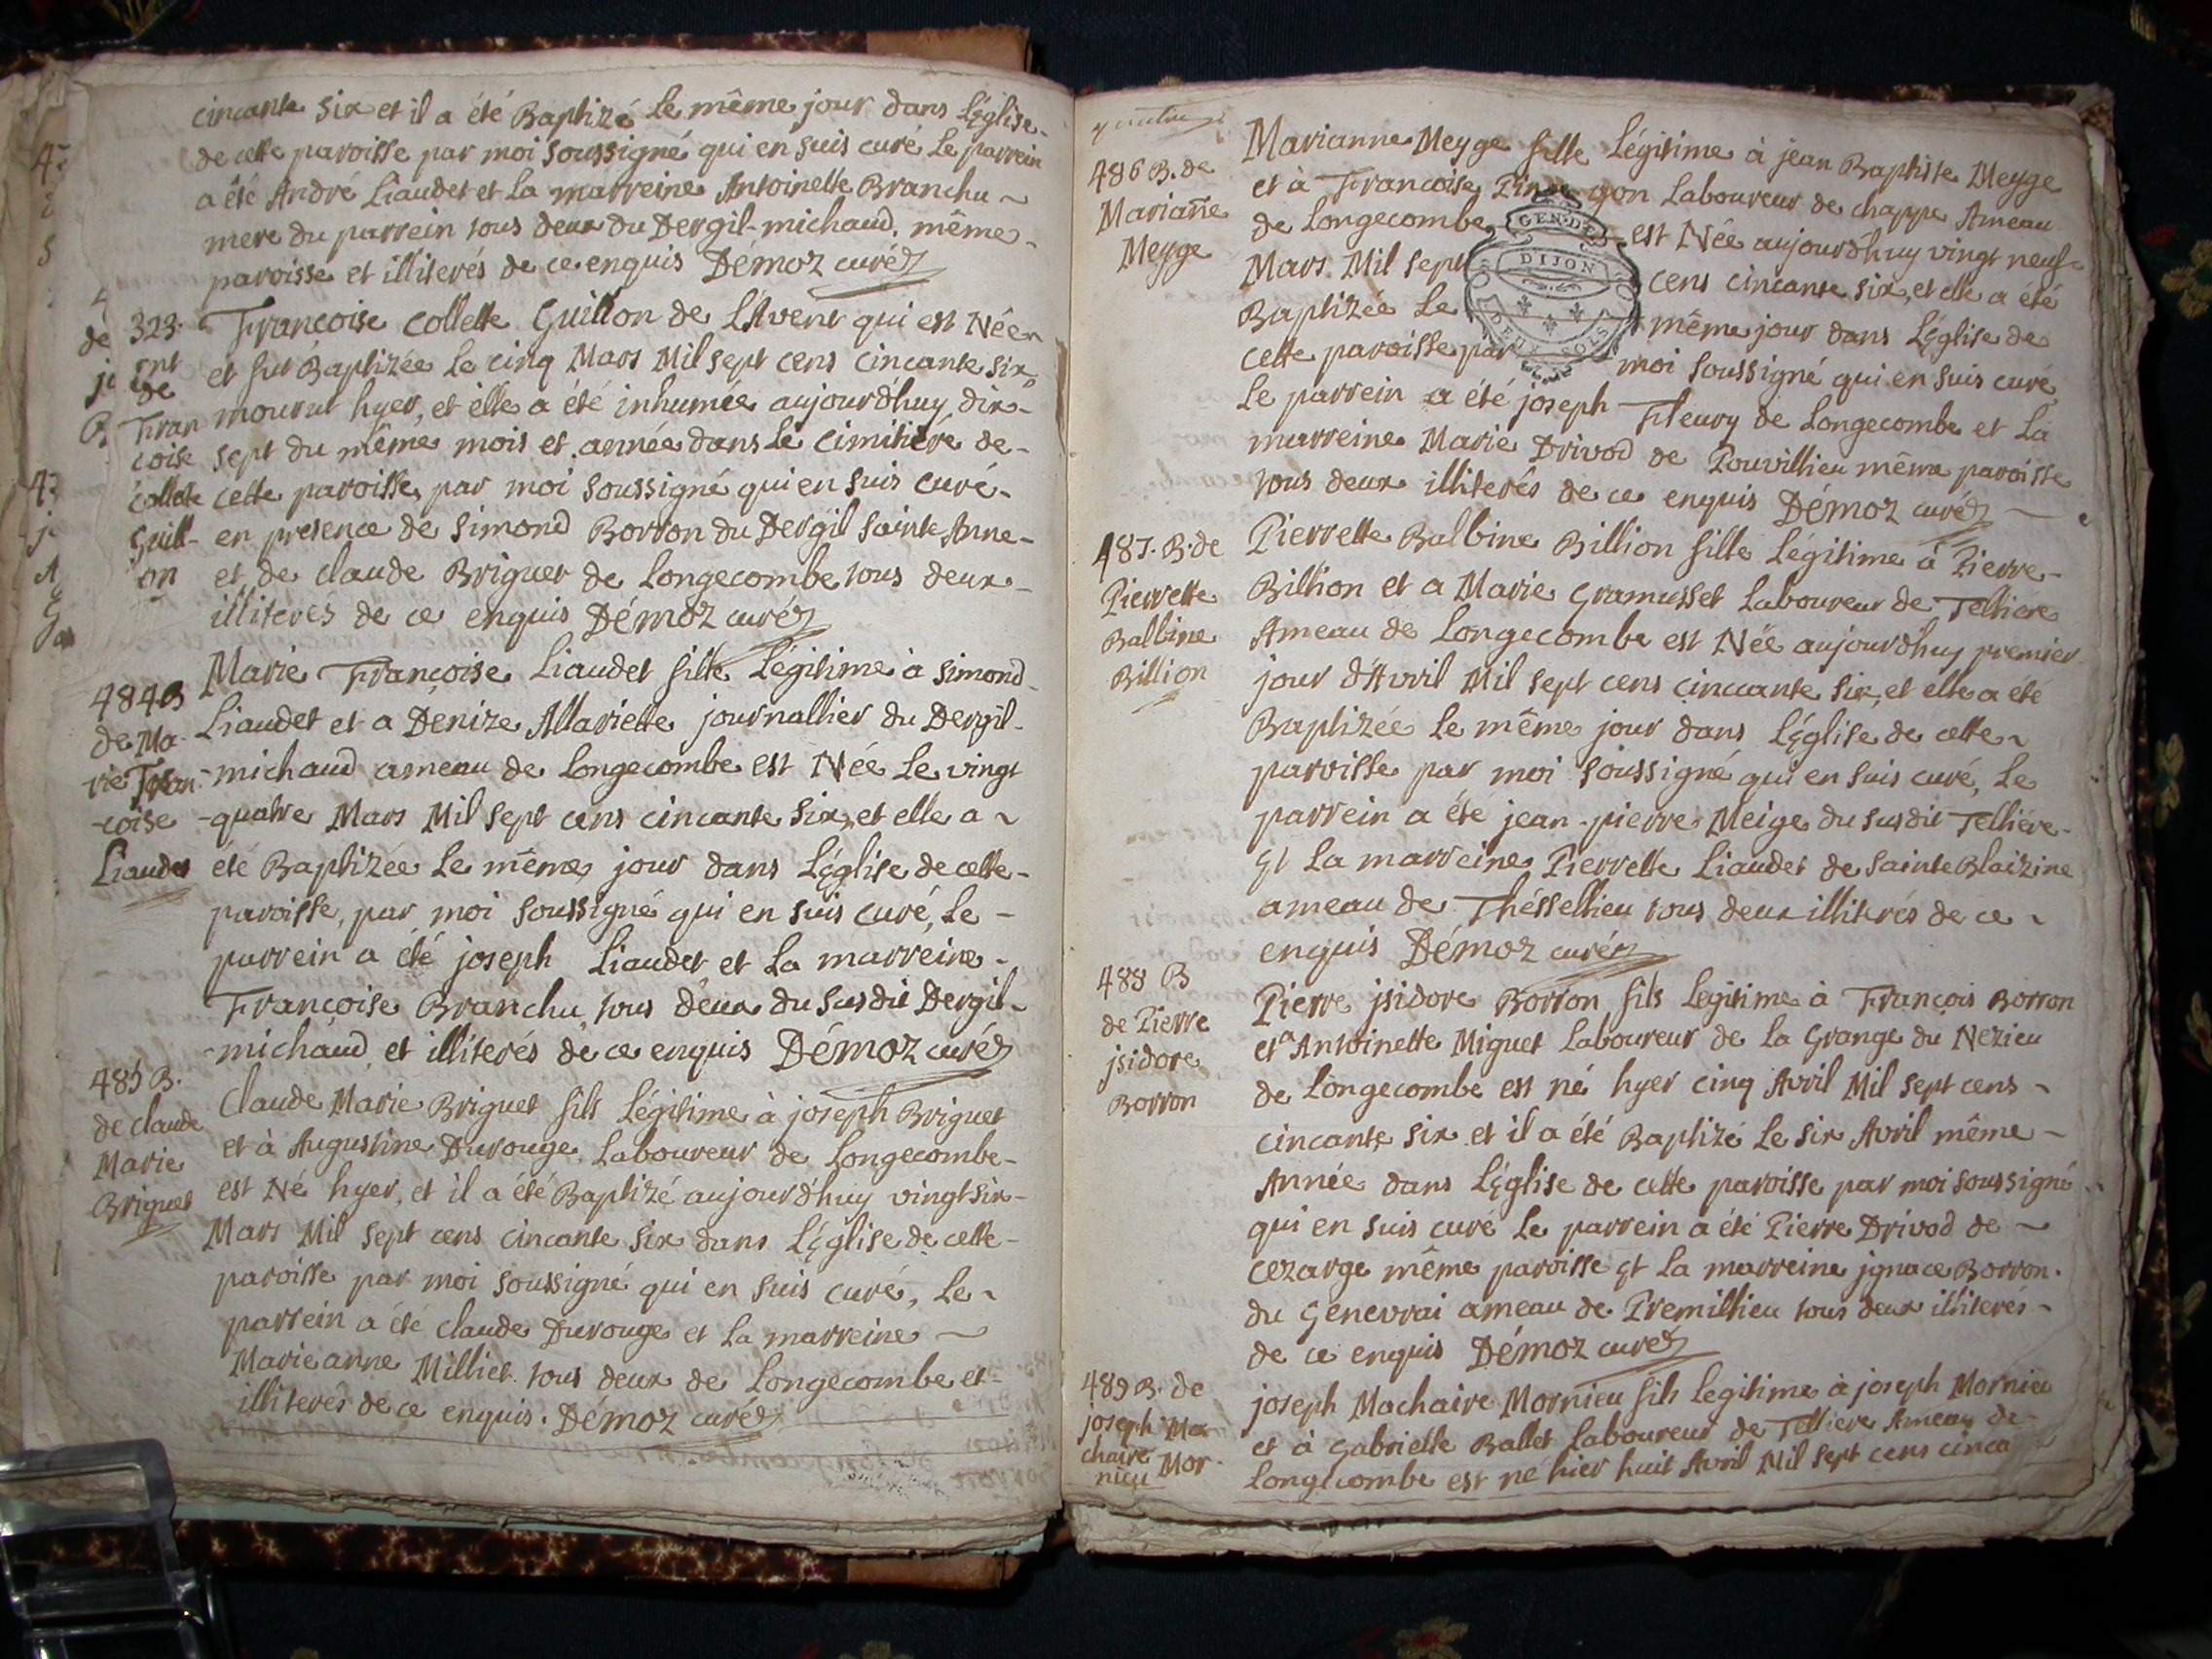 cincante six et il a été Baptizé le même jour dans L'Église
de cette paroisse par moi soussigné qui en suis curé Le parrein
a été André Liaudet et La marreine Antoinette Branchu ~
mere du parrein tous deux du Dergil-michaud, même
paroisse et illiterés de ce enquis Démoz curé
323.
ent
de
Fran
coise
collete
Guill-
on
Francoise collette Guillon de L'Avent qui est Née
et fut Baptizée le cinq Mars Mil sept cens cincante six,
mourut hyer, et elle a été inhumée aujourd'huy dix-
sept du même mois et année dans le cimitière de-
cette paroisse, par moi soussigné qui en suis curé-
en presence de Simond Borron du Dergil Sainte Anne-
et de claude Briguet de Longecombe tous deux-
illiterés de ce enquis Démoz curé
484 B
de Ma-
rie Fran-
-coise
Liaudet
Marie Françoise Liaudet fille Légitime à Simond
Liaudet et a Denize Allariette journallier du Dergil-
michaud ameau de Longecombe est Née le vingt
-quatre Mars Mil sept cens cincante six, et elle a ~
été Baptizée le même jour dans L'Église de cette-
paroisse, par moi soussigné qui en suis curé, Le -
parrein a été joseph Liaudet et La marreine -
Françoise Branchu, tous deux du susdit Dergil-
-michaud et illiterés de ce enquis Démoz curé
485 B.
de claude
Marie
Briguet
Claude Marie Briguet fils Légitime à joseph Briguet
et à Augustine Durouge Laboureur de Longecombe-
est Né hyer, et il a été Baptizé aujourd'huy vingt six-
Mars Mil sept cens cincante six dans L'Église de cette-
paroisse par moi soussigné qui en suis curé, Le ~
parrein a été claude Durouge et La marreine ~
Marieanne Milliet tous deux de Longecombe et-
illiterés de ce enquis. Démoz curé
486 B. de
Marian̄e
Meyge
Marianne Meyge fille Légitime à jean Baptiste Meyge
et à Francoise Pin gon Laboureur de chappe Ameau
de Longecombe est Née aujourd'huy vingt neuf-
Mars Mil sept cens cincante six, et elle a été
Baptizée Le même jour dans L'Église de
cette paroisse par moi soussigné qui en suis curé
Le parrein a été joseph Fleury de Longecombe et La
marreine Marie Drivod de Pouvillieu même paroisse
tous deux illiterés de ce enquis Démoz curé
GEN. DE
DIJON
DEUX SOLS
487. B. de
Pierrette
Balbine
Billion
Pierrette Balbine Billion fille Légitime à Pierre-
Billion et a Marie Gramusset Laboureur de Tellière
Ameau de Longecombe est Née aujourd'huy premier
jour d'Avril Mil sept cens cincuante six, et elle a été
Baptizée le même jour dans L'Église de cette ~
paroisse par moi soussigné qui en suis curé, Le
parrein a été jean-pierre Meige du susdit Tellière-
Et La marreine Pierrette Liaudet de Sainte Blaizine
ameau de Théssellieu tous deux illiterés de ce ~
enquis Démoz curé
488 B
de Pierre
jsidore
Borron
Pierre jsidore Borron fils Legitime à François Borron
et a Antoinette Miguet Laboureur de La Grange du Nezieu
de Longecombe est né hyer cinq Avril Mil sept cens ~
cincante six et il a été Baptizé le six Avril même -
Année dans L'Église de cette paroisse par moi soussigné
qui en suis curé Le parrein a été Pierre Drivod de ~
cezarge même paroisse Et La marreine jgnace Borron.
du Genevrai ameau de Premillieu tous deux illiterés-
de ce enquis Démoz curé
489 B. de
joseph Ma-
chaire Mor-
nieu
joseph Machaire Mornieu fils Legitime à joseph Mornieu
et à Gabrielle Ballet Laboureur de Telliere Ameau de-
Longecombe est né hier huit Avril Mil sept cens cinca